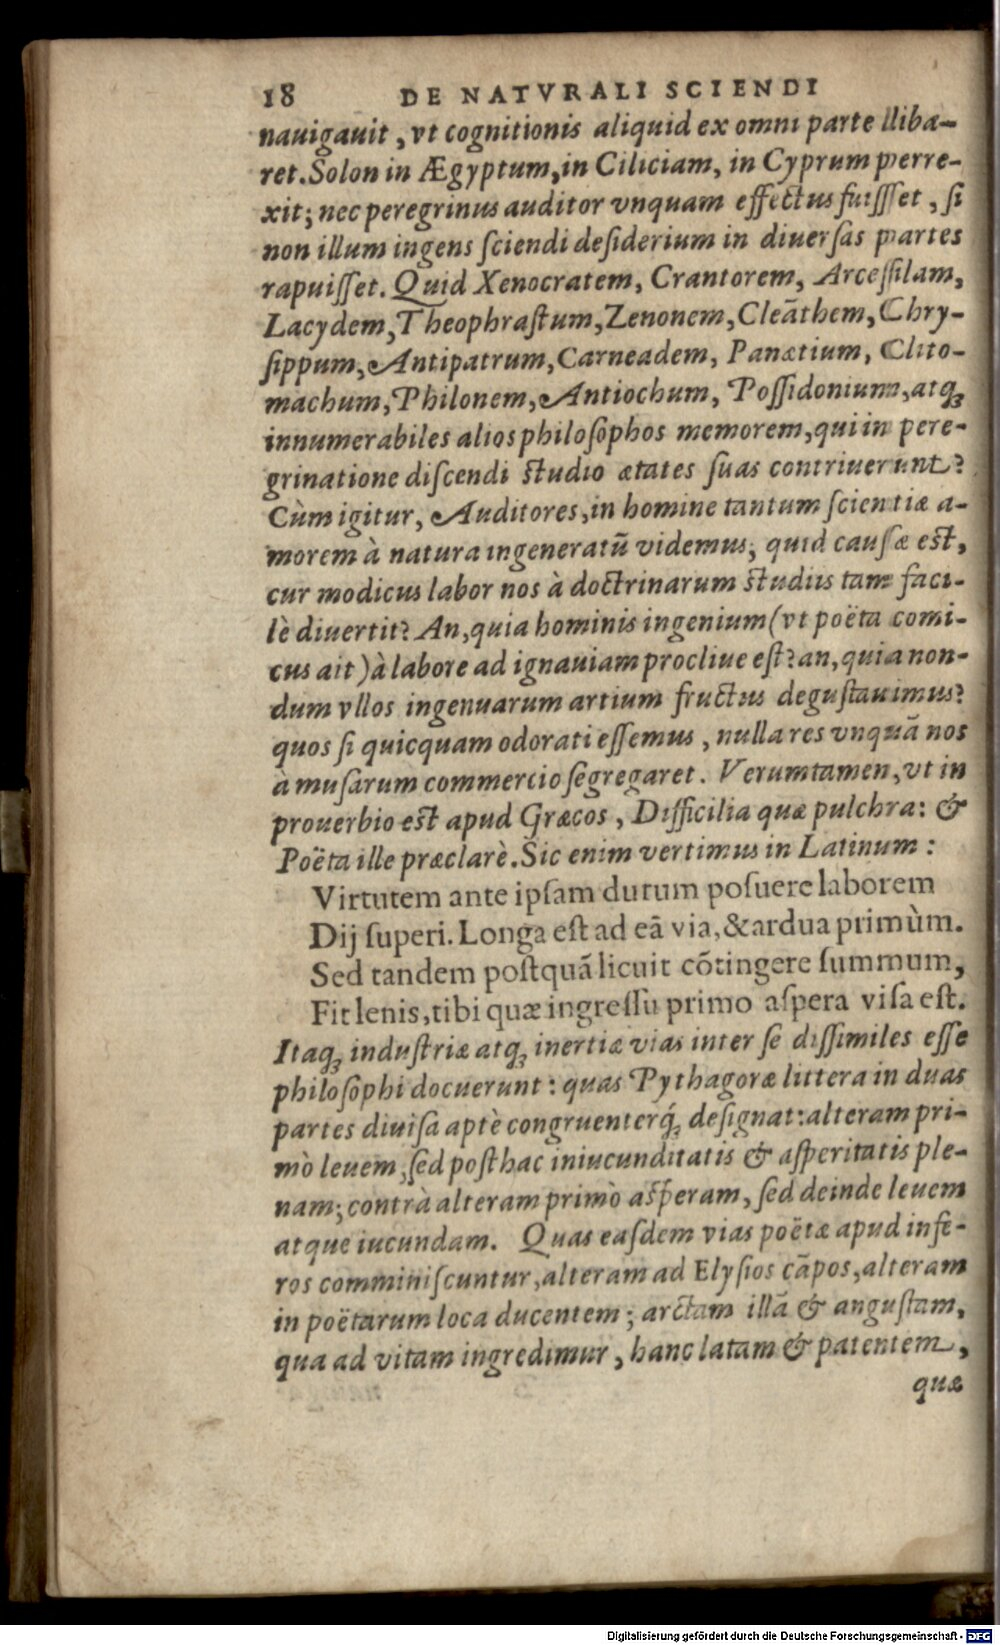 18 DE NATVRALI SCIENDI
nauigauit, vt cognitionis aliquid ex omni parte liba-
ret. Solon in Ægyptum, in Ciliciam, in Cyprum perre-
xit; nec peregrinus auditor vnquam effectus fuiſſet, ſi
non illum ingens ſciendi deſiderium in diuerſas partes
rapuiſſet. Quid Xenocratem, Crantorem, Arceſſilam,
Lacydem, Theophraſtum, Zenonem, Cleãthem, Chry-
ſippum, Antipatrum, Carneadem, Panætium, Clito-
machum, Philonem, Antiochum, Poſſidonium, atq;
innumerabiles alios philoſophos memorem, qui in pere-
grinatione diſcendi ſtudio ætates ſuas contriuerunt?
Cùm igitur, Auditores, in homine tantum ſcientiæ a-
morem à natura ingeneratũ videmus; quid cauſæ eſt,
cur modicus labor nos à doctrinarum ſtudiis tam faci-
lè diuertit? An, quia hominis ingenium (vt poëta comi-
cus ait) à labore ad ignauiam procliue eſt? an, quia non-
dum vllos ingenuarum artium fructus deguſtauimus?
quos ſi quicquam odorati eſſemus, nulla res vnquã nos
à muſarum commercio ſegregaret. Verumtamen, vt in
prouerbio eſt apud Græcos, Difficilia quæ pulchra: &
Poëta ille præclarè. Sic enim vertimus in Latinum:
Virtutem ante ipſam durum poſuere laborem
Dij ſuperi. Longa eſt ad eã via, & ardua primùm.
Sed tandem poſtquã licuit cõtingere ſummum,
Fit lenis, tibi quæ ingreſſu primo aſpera viſa eſt.
Itaq; induſtriæ atq; inertiæ vias inter ſe diſſimiles eſſe
philoſophi docuerunt: quas Pythagoræ littera in duas
partes diuiſa aptè congruenterq́; deſignat: alteram pri-
mò leuem, ſed poſt hac iniucunditatis & aſperitatis ple-
nam; contrà alteram primò aſperam, ſed deinde leuem
atque iucundam. Quas eaſdem vias poëtæ apud infe-
ros comminiſcuntur, alteram ad Elyſios cãpos, alteram
in poëtarum loca ducentem; arctam illã & anguſtam,
qua ad vitam ingredimur, hanc latam & patentem,
quæ
Digitalisierung gefördert durch die Deutsche Forschungsgemeinschaft - DFG